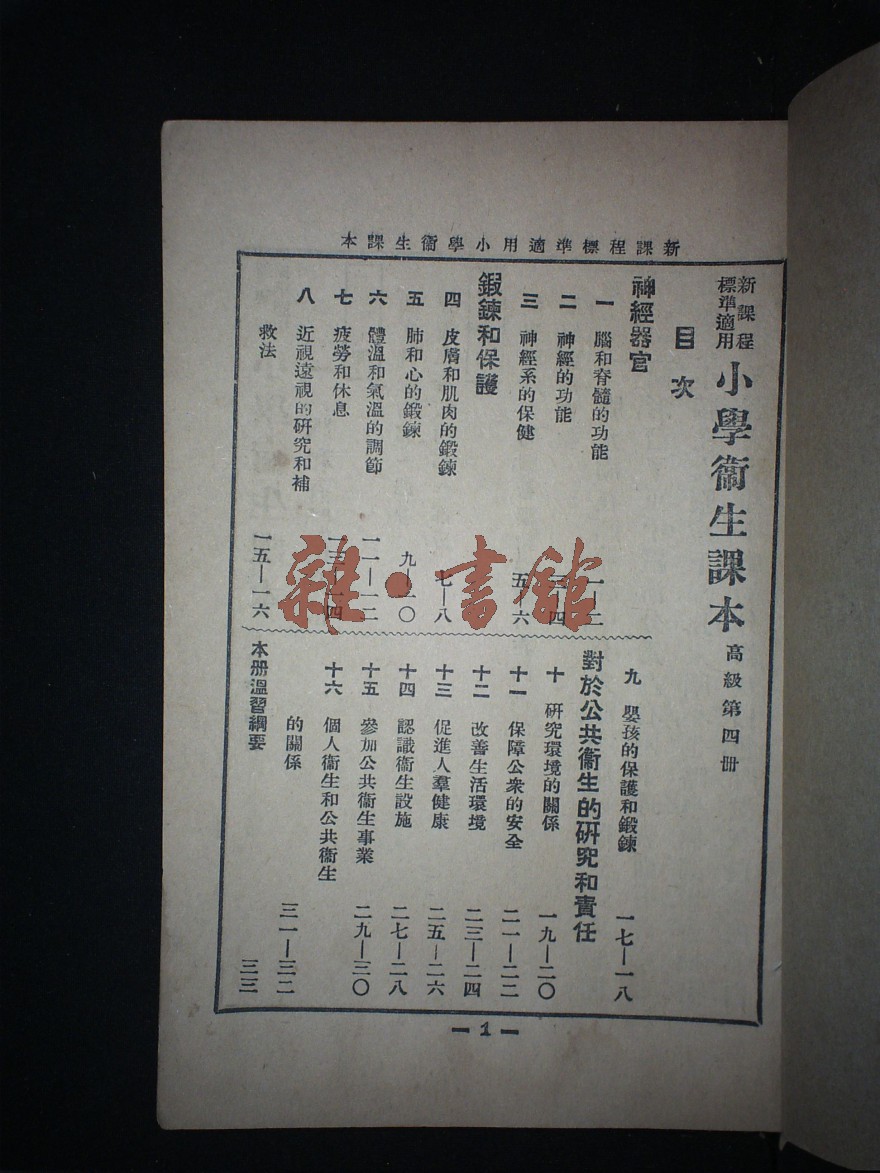 新課程標準適用小學衞生課本
新課程
標準適用
小學衞生課本
高級第四冊
目次
神經器官
一 腦和脊髓的功能 一—二
二 神經的功能 三—四
三 神經系的保健 五—六
鍛鍊和保護
四 皮膚和肌肉的鍛鍊 七—八
五 肺和心的鍛鍊 九—一〇
六 體溫和氣溫的調節 一一—一二
七 疲勞和休息 一三—一四
八 近視遠視的研究和補
救法 一五—一六
九 嬰孩的保護和鍛鍊 一七—一八
對於公共衞生的研究和責任
十 研究環境的關係 一九—二〇
十一 保障公衆的安全 二一—二二
十二 改善生活環境 二三—二四
十三 促進人羣健康 二五—二六
十四 認識衞生設施 二七—二八
十五 參加公共衞生事業 二九—三〇
十六 個人衞生和公共衞生
的關係 三一—三二
本册溫習綱要 三三
— 1 —
雜·書館